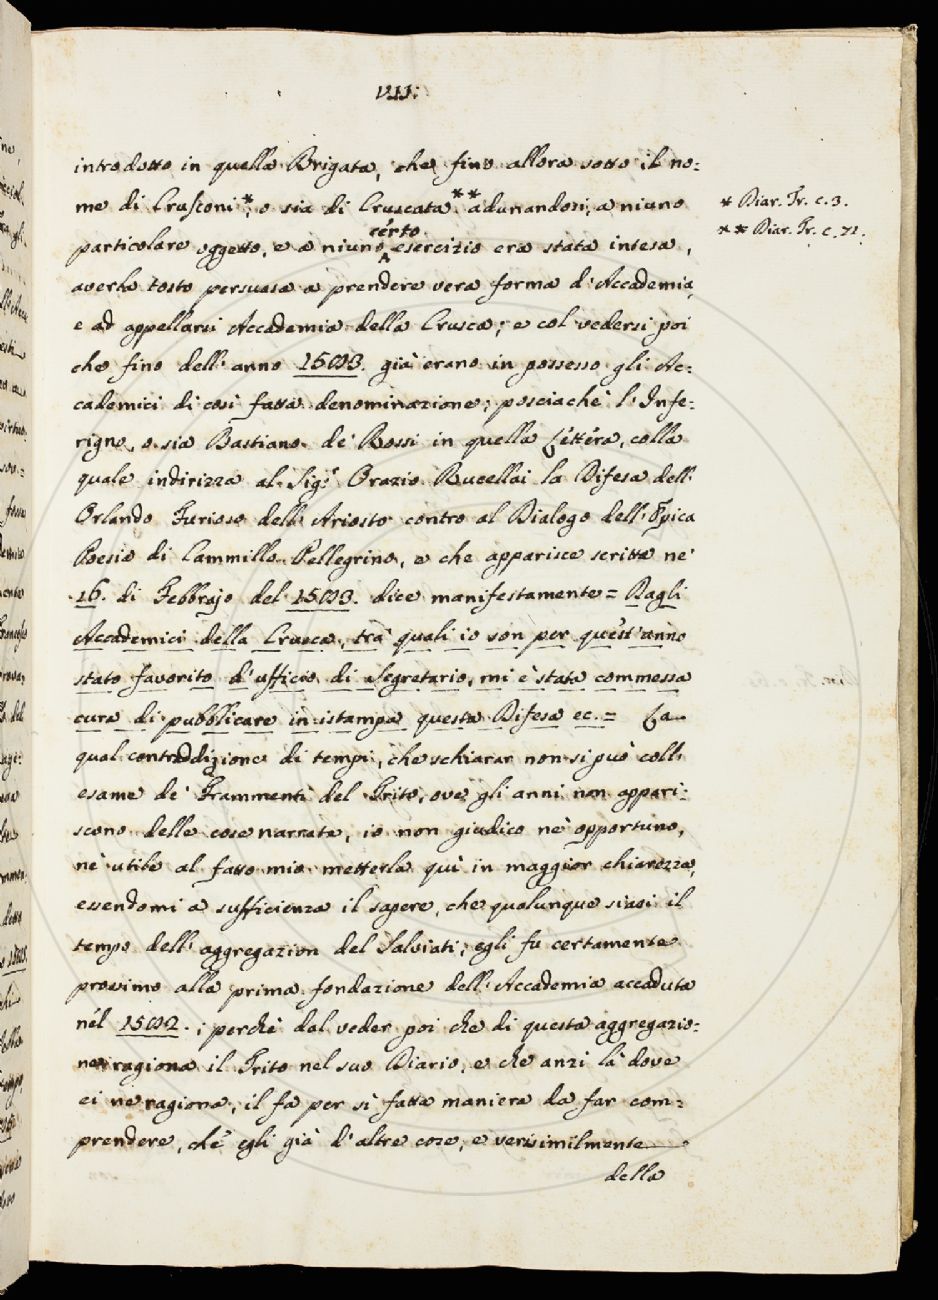 VII:
introdotto in quella Brigata, che fino allora sotto il no=
me di Crusconi*, o sia di Cruscata** adunandosi, a niuno
* Diar. Tr. c. 3.
** Diar. Tr. c. 71.
particolare oggetto, e a niuno certo esercizio era stata intesa,
averla tosto persuasa a prendere vera forma d'Accademia,
e ad appellarsi Accademia della Crusca; e col vedersi poi
che fino dell'anno 1583. già erano in possesso gli Ac=
cademici di così fatta denominazione; posciachè l'Infe=
rigno, o sia Bastiano de' Rossi in quella Lettera, colla
quale indirizza al Sig.r Orazio Rucellai la Difesa dell'
Orlando Furioso dell'Ariosto contro al Dialogo dell'Epica
Poesia di Cammillo Pellegrino, e che apparisce scritta ne'
16. di Febbrajo del 1583. dice manifestamente = Dagli
Accademici della Crusca, tra' quali io son per quest'anno
stato favorito d'ufficio di Segretario, mi è stata commessa
cura di pubblicare in istampa questa Difesa ec. = La
qual contraddizione di tempi, che schiarar non si può coll'
esame de' Frammenti del Trito, ove gli anni non appari=
scono delle cose narrate, io non giudico nè opportuno,
nè utile al fatto mio metterla quì in maggior chiarezza,
essendomi a sufficienza il sapere, che qualunque siasi il
tempo dell'aggregazion del Salviati; egli fu certamente
prossimo alla prima fondazione dell'Accademia accaduta
nel 1582.; perchè dal veder poi che di questa aggregazio=
ne ragiona il Trito nel suo Diario, e che anzi là dove
ei ne ragiona, il fa per sì fatta maniera da far com=
prendere, che egli già d'altre cose, e verisimilmente
della